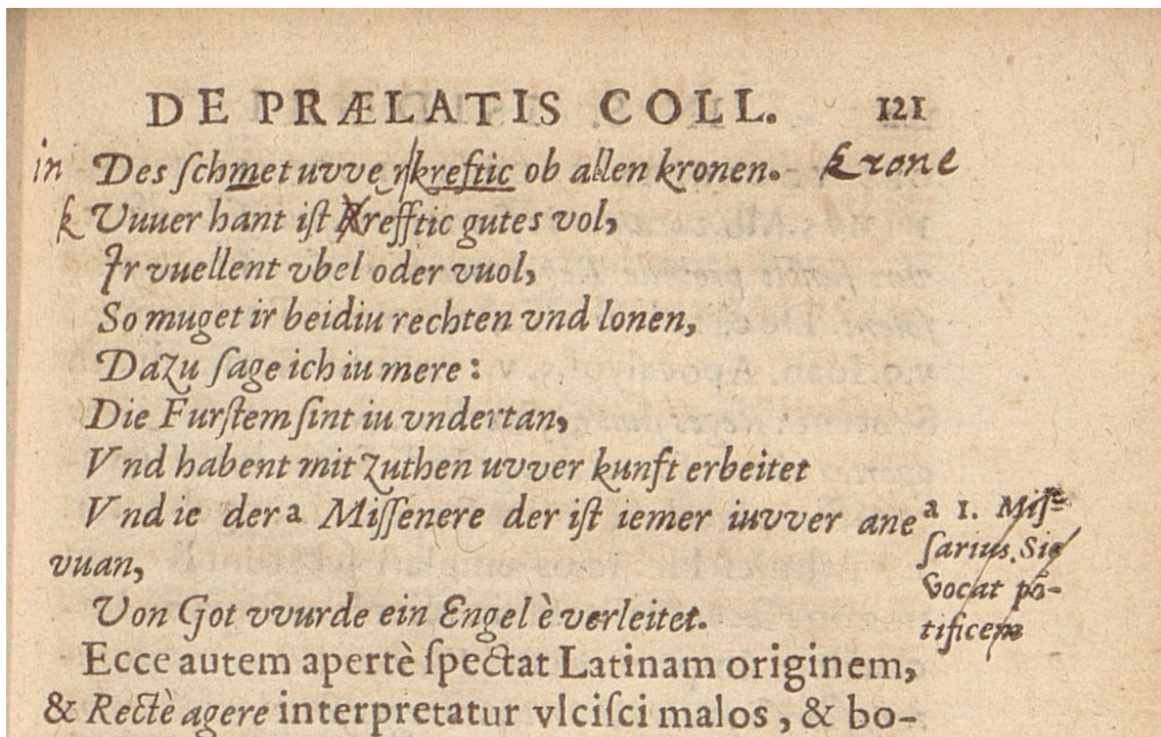 DE PRÆLATIS COLL. 121
in Des ſchmet uvve r kreftic ob allen kronen. krone
k Uuuer hant iſt Krefftic gutes vol,
Jr vuellent vbel oder vuol,
So muget ir beidiu rechten vnd lonen,
Dazu ſage ich iu mere:
Die Furſtem ſint iu vndertan,
Vnd habent mit zuthen uvver kunft erbeitet
Vnd ie der a Miſſenere der iſt iemer iuvver ane
vuan,
Von Got vvurde ein Engel è verleitet.
Ecce autem apertè ſpectat Latinam originem,
& Rectè agere interpretatur vlciſci malos, & bo-
a 1. Miſ-
ſarius. Sic
vocat pō-
tificem